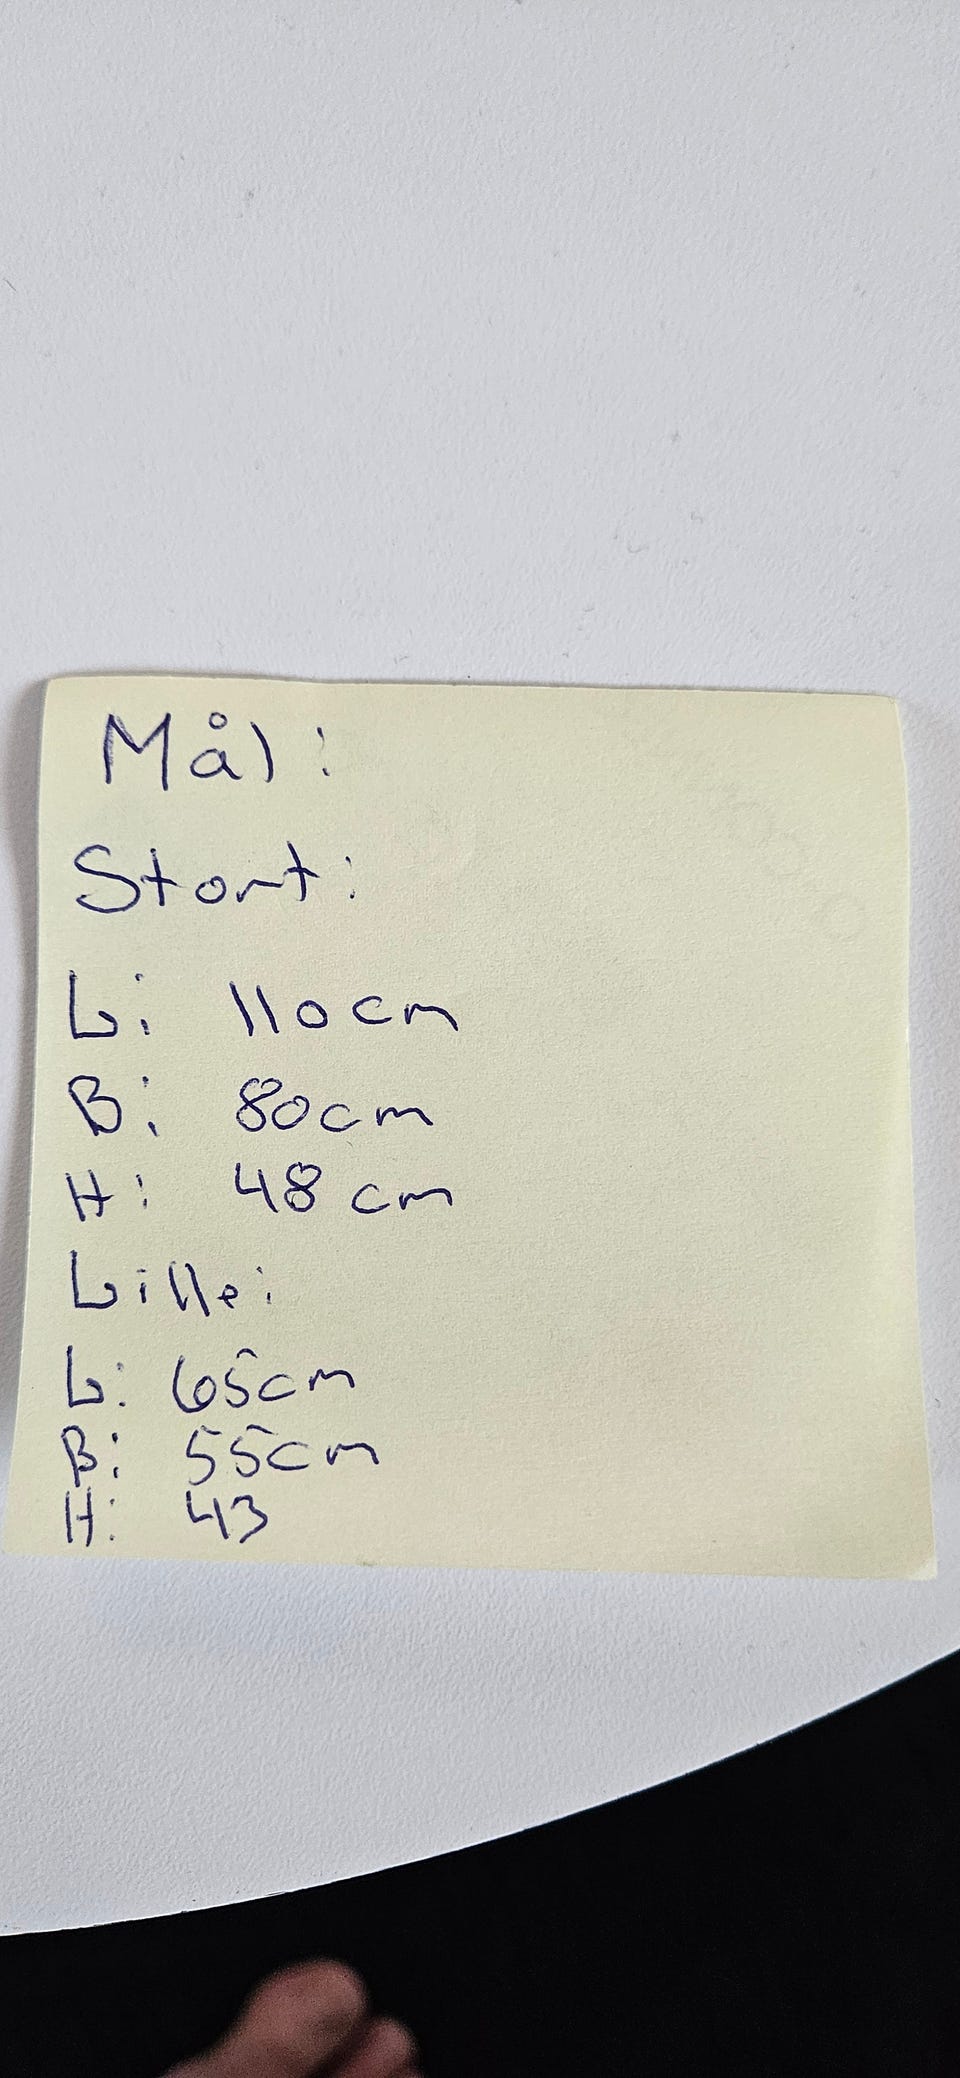 Mål:
Stort:
L: 110cm
B: 80cm
H: 48 cm
Lille:
L: 65cm
B: 55cm
H: 43